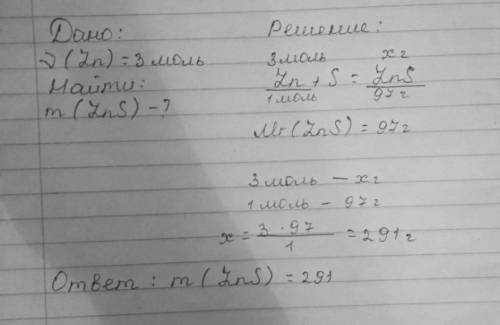 Дано:
ν(Zn) = 3 моль
Найти:
m(ZnS) - ?
Решение:
3 моль x г
Zn + S = ZnS
1 моль 97 г
Mr(ZnS) = 97 г
3 моль — x г
1 моль — 97 г
x = 3 · 97 / 1 = 291 г
Ответ: m(ZnS) = 291